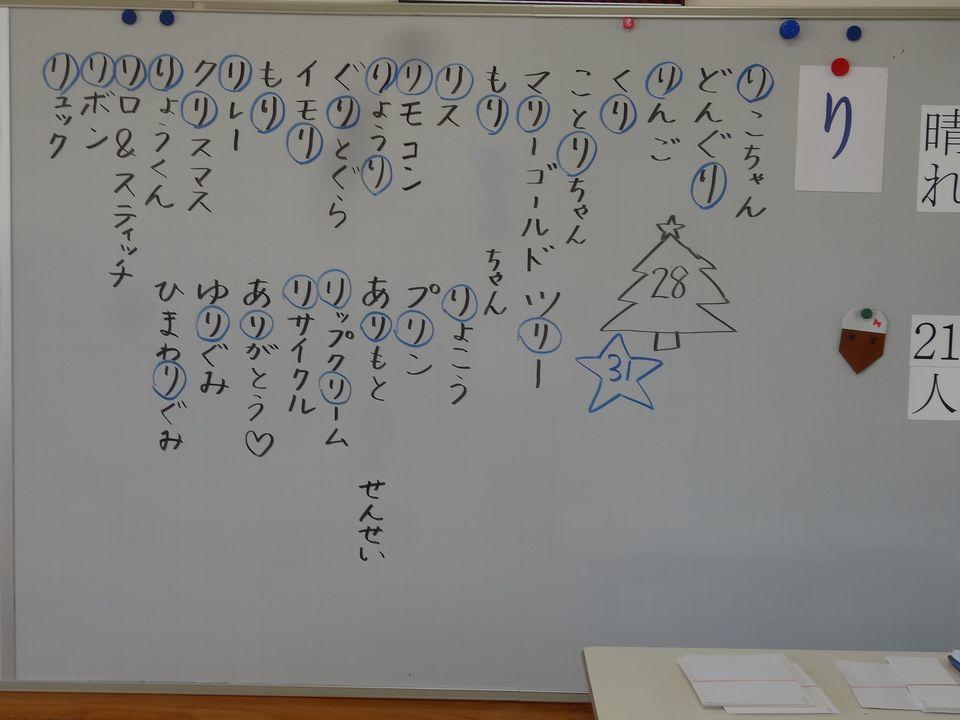 晴れ
21人
り
りこちゃん
どんぐり
りんご
くり
ことりちゃん
マリーゴールド
ツリー
もりちゃん
リス
リモコン
りょうり
ぐりとぐら
イモリ
もり
リレー
クリスマス
りょうくん
リロ&スティッチ
リボン
リュック
28
31
りよこう
プリン
ありもとせんせい
リップクリーム
リサイクル
ありがとう♡
ゆりぐみ
ひまわりぐみ